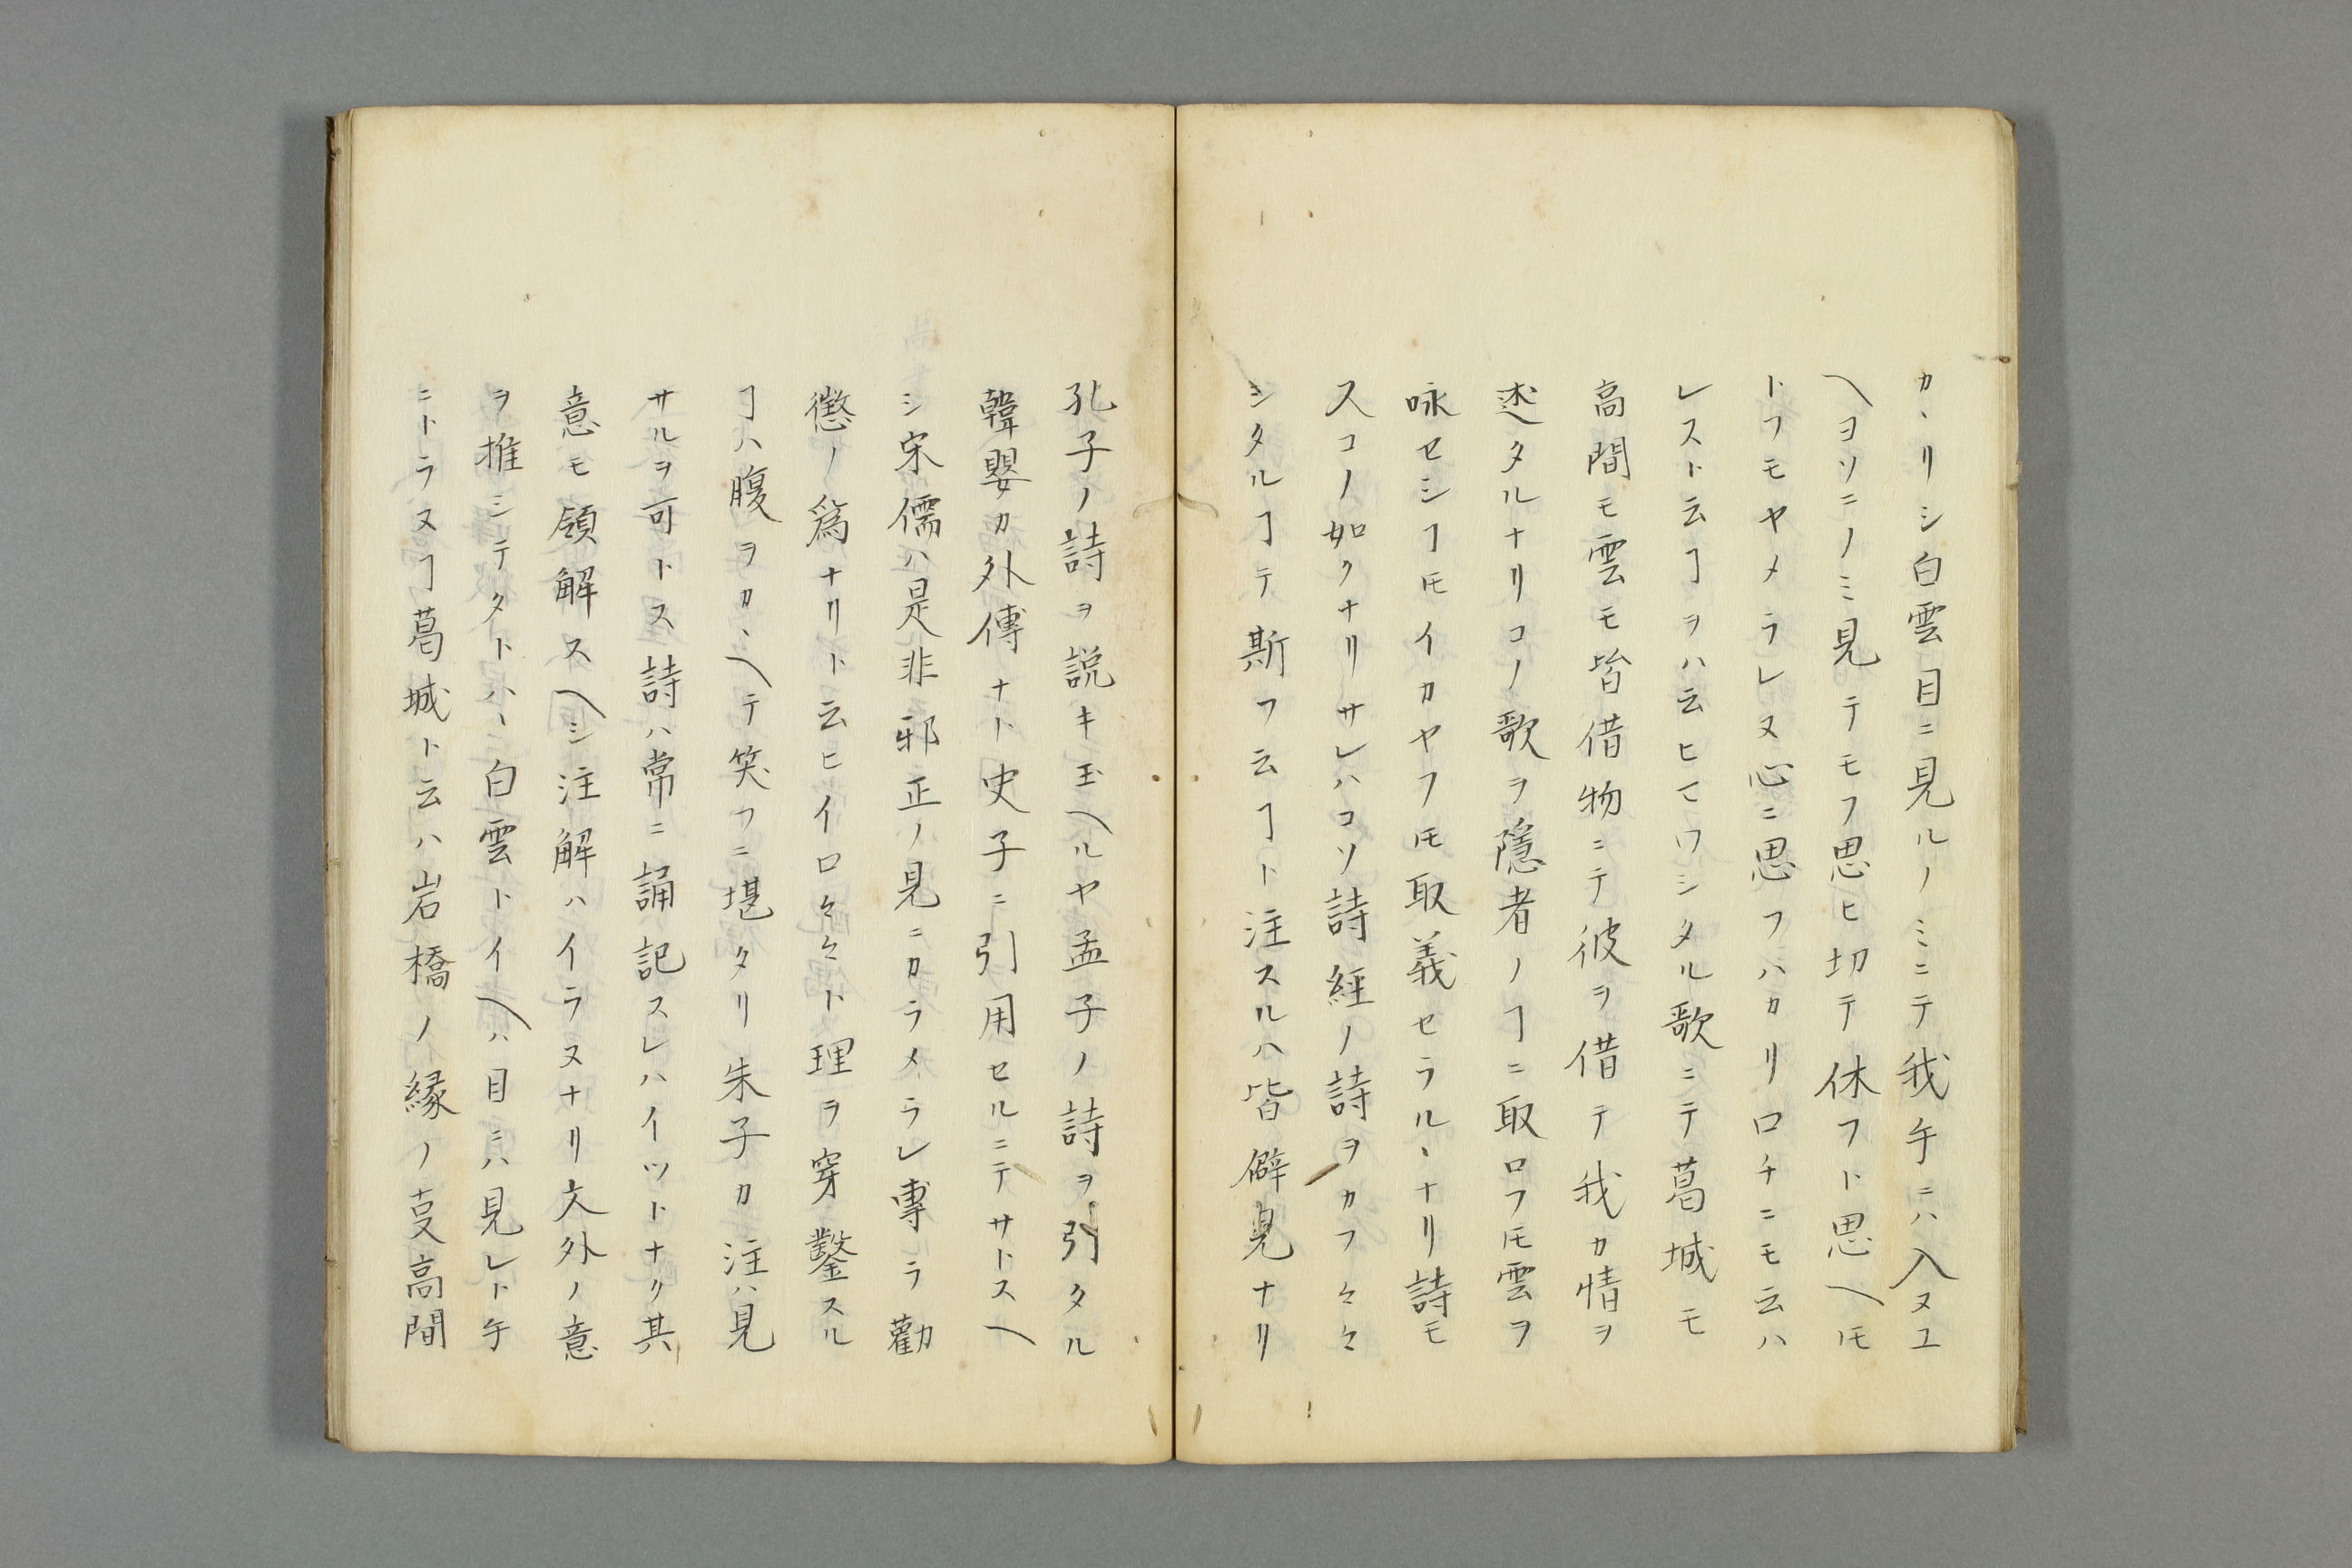 カヽリシ白雲目ニ見ルノミニテ我手ニハ入ヌユ
ヘヨソニノミ見テモフ思ヒ切テ休フト思ヘ𪜈
トフモヤメラレヌ心ニ思フハカリロチニモ云ハ
レスト云ヿヲハ云ヒマワシタル歌ニテ葛城モ
高間モ雲モ皆借物ニテ彼ヲ借テ我カ情ヲ
述タルナリコノ歌ヲ隠者ノヿニ取ロフ𪜈雲ヲ
咏セシヿ𪜈イカヤフ𪜈取義セラルヽナリ詩モ
スコノ如クナリサレハコソ詩經ノ詩ヲカフ〻〻
シタルヿテ斯フ云ヿト注スルハ皆僻見ナリ
孔子ノ詩ヲ説キ玉ヘルヤ孟子ノ詩ヲ引タル
韓嬰カ外傳ナト史子ニ引用セルニテサトスヘ
シ宋儒ハ是非邪正ノ見ニカラメラレ專ラ勸
懲ノ爲ナリト云ヒイロ〻〻ト理ヲ穿鑿スル
ヿハ腹ヲカヽヘテ笑フニ堪タリ朱子カ注ハ見
サルヲ可トス詩ハ常ニ誦記スレハイツトナク其
意モ領解スヘシ注解ハイラヌナリ文外ノ意
ヲ推シテタトハヽ白雲トイヘハ目ニハ見レト手
ニトラヌヿ葛城ト云ハ岩橋ノ縁ノ叓高間